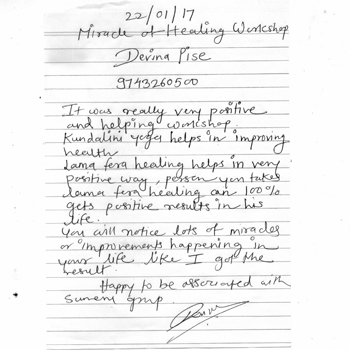 22/01/17
Miracle of Healing Workshop
Devina Pise
9743260500
It was really very positive
and helping workshop.
Kundalini yoga helps in improving
health
Lama fera healing helps in very
positive way, person you takes
lama fera healing an 100%
gets positive results in his
life.
You will notice lots of miracles
or improvements happening in
your life like I got the
result.
Happy to be associated with
group.